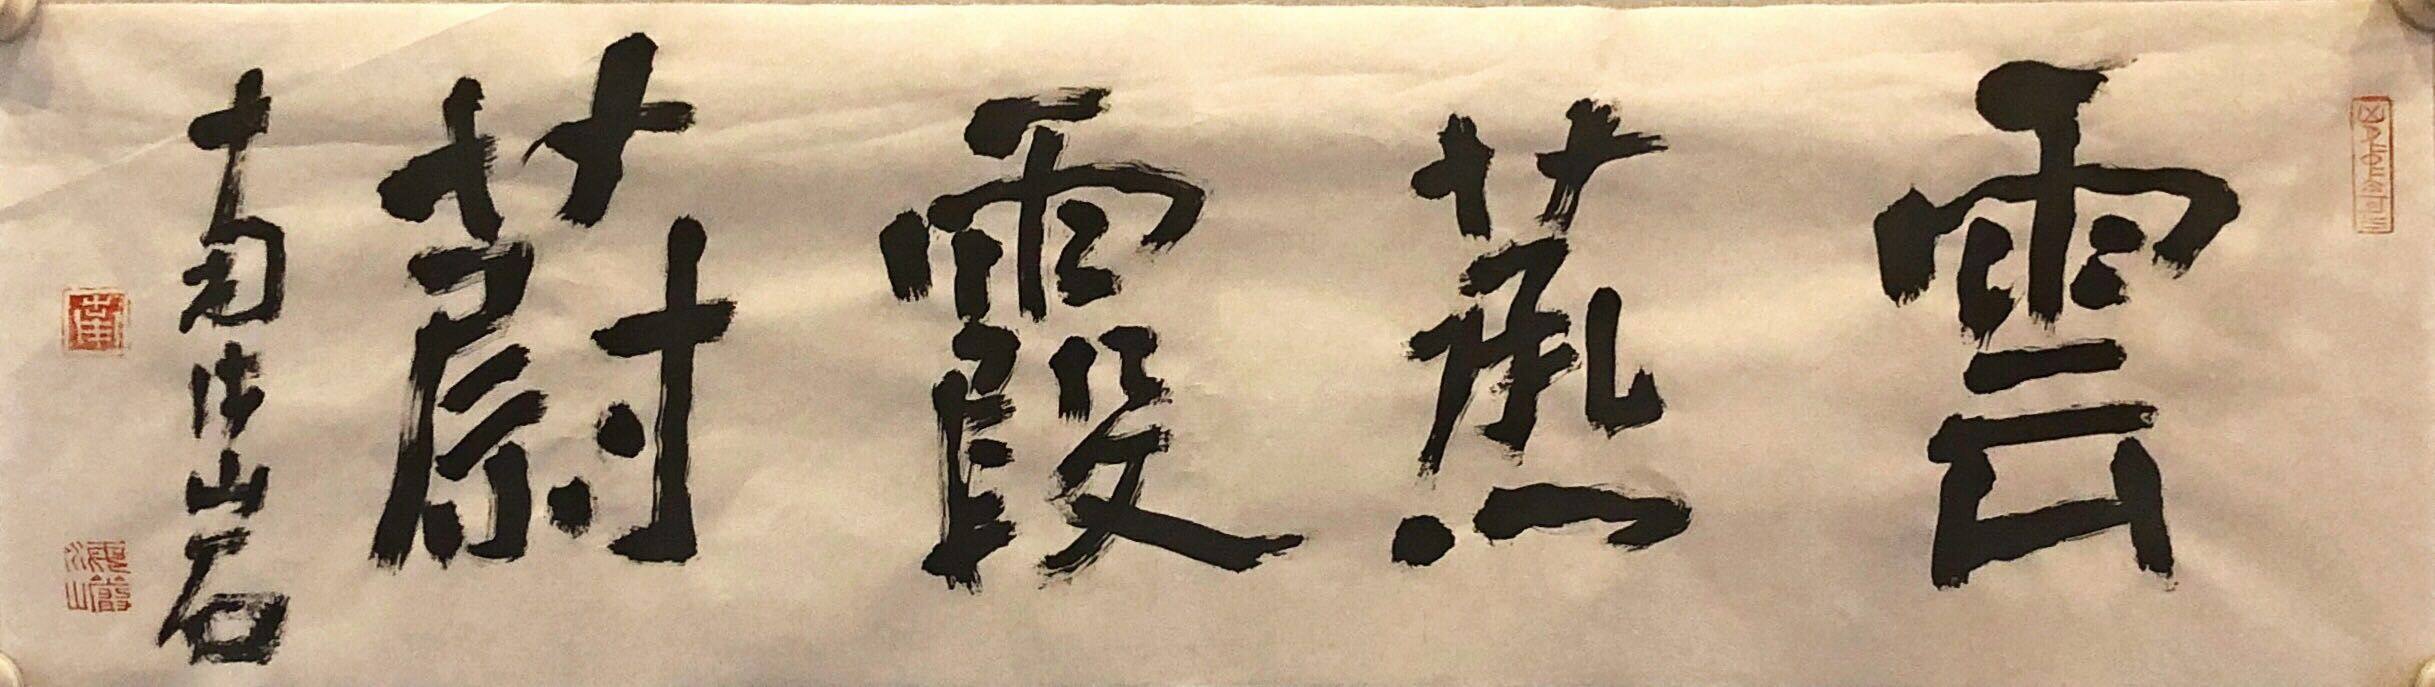 雲蒸霞蔚
南山石